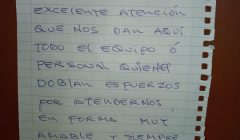 EXCELENTE ATENCIÓN
QUE NOS DAN AQUÍ
TODO EL EQUIPO Ó
PERSONAL QUIENES
DOBLAN ESFUERZOS
POR ATENDERNOS
EN FORMA MUY
AMABLE Y SIEMPRE